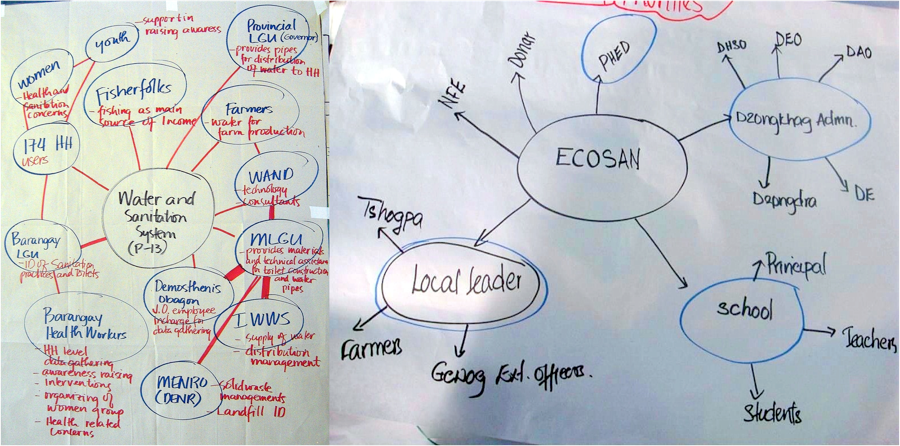 youth
- support in
raising awareness
Provincial
LGU (Governor)
- provides pipes
for distribution
of water to HH
women
- Health and
sanitation
concerns
Fisherfolks
- fishing as main
source of Income
Farmers
- water for
farm production
174 HH
users
WAND
- technology
consultants
Water and
Sanitation
System
(P-13)
Barangay
LGU
- ID of Sanitation
practices and toilets
MLGU
- provides materials
and technical assistance
in toilet construction
and water
pipes
Demosthenis
Obagon
J.O. employee
incharge for
data gathering
IWWS
- supply of water
- distribution
management
Barangay
Health Workers
- HH level
data gathering
- awareness raising
- Interventions
- organizing of
women group
- Health related
concerns
MENRO
(DENR)
- solid waste
managements
- Landfill ID
NFE
Donar
PHED
DHSO
DEO
DAO
Dzongkhag Admn.
DE
ECOSAN
Tshogpa
Local leader
Farmers
Gewog Ext. officers.
School
Principal
Teachers
Students